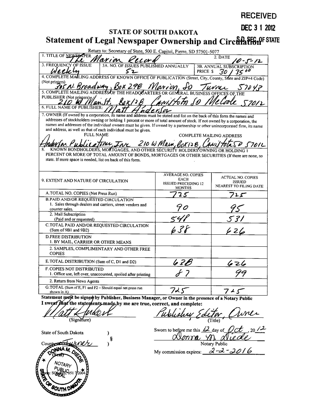 RECEIVED
DEC 31 2012
S.D. SEC. OF STATE
STATE OF SOUTH DAKOTA
Statement of Legal Newspaper Ownership and Circulation
Return to: Secretary of State, 500 E. Capitol, Pierre, SD 57501-5077
1. TITLE OF NEWSPAPER The Marion Record
2. DATE 10-5-12
3. FREQUENCY OF ISSUE Weekly
3A. NO. OF ISSUES PUBLISHED ANNUALLY 52
3B. ANNUAL SUBSCRIPTION PRICE $
4. COMPLETE MAILING ADDRESS OF KNOWN OFFICE OF PUBLICATION (Street, City, County, State and ZIP+4 Code) (Not printers)
N. Broadway, Box 298 Marion, SD Turner 57043
5. COMPLETE MAILING ADDRESS OF THE HEADQUARTERS OR GENERAL BUSINESS OFFICES OF THE PUBLISHER (Not printers)
210 W Main St. Box 128, Canistota SD McCook 57012
6. FULL NAME OF PUBLISHER: Matt Anderson
7. OWNER (If owned by a corporation, its name and address must be stated and also on the back of this form the names and
addresses of stockholders owning or holding 1 percent or more of total amount of stock. If not owned by a corporation, the
names and addresses of the individual owners must be given. If owned by a partnership or other unincorporated firm, its name
and address, as well as that of each individual must be given.
FULL NAME COMPLETE MAILING ADDRESS
Anderson Publications Inc. 210 W Main, Box 128, Canistota SD 57012
8. KNOWN BONDHOLDERS, MORTGAGEES, AND OTHER SECURITY HOLDERS OWNING OR HOLDING 1
PERCENT OR MORE OF TOTAL AMOUNT OF BONDS, MORTGAGES OR OTHER SECURITIES (If there are none, so
state. If more space is needed, list on back of this form.
9. EXTENT AND NATURE OF CIRCULATION
AVERAGE NO. COPIES EACH ISSUED PRECEDING 12 MONTHS
ACTUAL NO. COPIES ISSUED NEAREST TO FILING DATE
A. TOTAL NO. COPIES (Net Press Run) 725 725
B. PAID AND/OR REQUESTED CIRCULATION
1. Sales through dealers and carriers, street vendors and counter sales. 90 95
2. Mail Subscription (Paid and/or requested) 548 531
C. TOTAL PAID AND/OR REQUESTED CIRCULATION (Sum of 9B1 and 9B2) 638 626
D. FREE DISTRIBUTION
1. BY MAIL, CARRIER OR OTHER MEANS
2. SAMPLES, COMPLIMENTARY AND OTHER FREE COPIES
E. TOTAL DISTRIBUTION (Sum of C, D1 and D2) 638 626
F. COPIES NOT DISTRIBUTED
1. Office use, left over, unaccounted, spoiled after printing 87 99
2. Return from News Agents
G. TOTAL (Sum of E, F1 and F2 - Should equal net press run shown in A) 725 725
Statement must be signed by Publisher, Business Manager, or Owner in the presence of a Notary Public
I swear that the statements made by me are true, correct, and complete:
Matt Anderson Publisher, Editor, Owner
(Signature) (Title)
State of South Dakota )
§
County of )
Sworn to before me this day of Oct, 2012
Donna M.
Notary Public
My commission expires: 2-2-2016
DONNA M.
NOTARY
PUBLIC
SOUTH DAKOTA